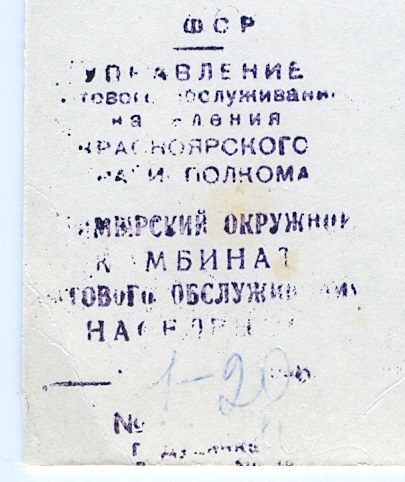 ФСР
УПРАВЛЕНИЕ
бытового обслуживания
населения
КРАСНОЯРСКОГО
КРАЙИСПОЛКОМА
ТАЙМЫРСКИЙ ОКРУЖНОЙ
КОМБИНАТ
БЫТОВОГО ОБСЛУЖИВАНИЯ
НАСЕЛЕНИЯ
1-20
№
г. Дудинка